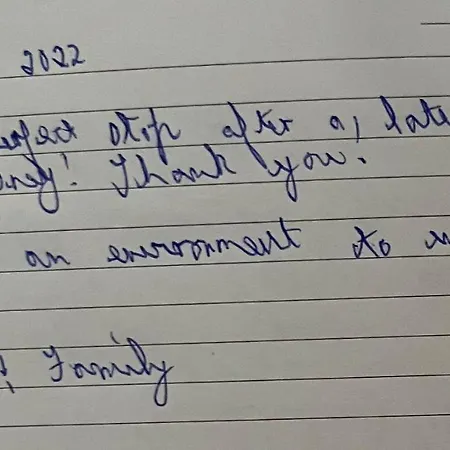 2022
erfect stop after a, late
rney! Thank you.
an environment to
& Family